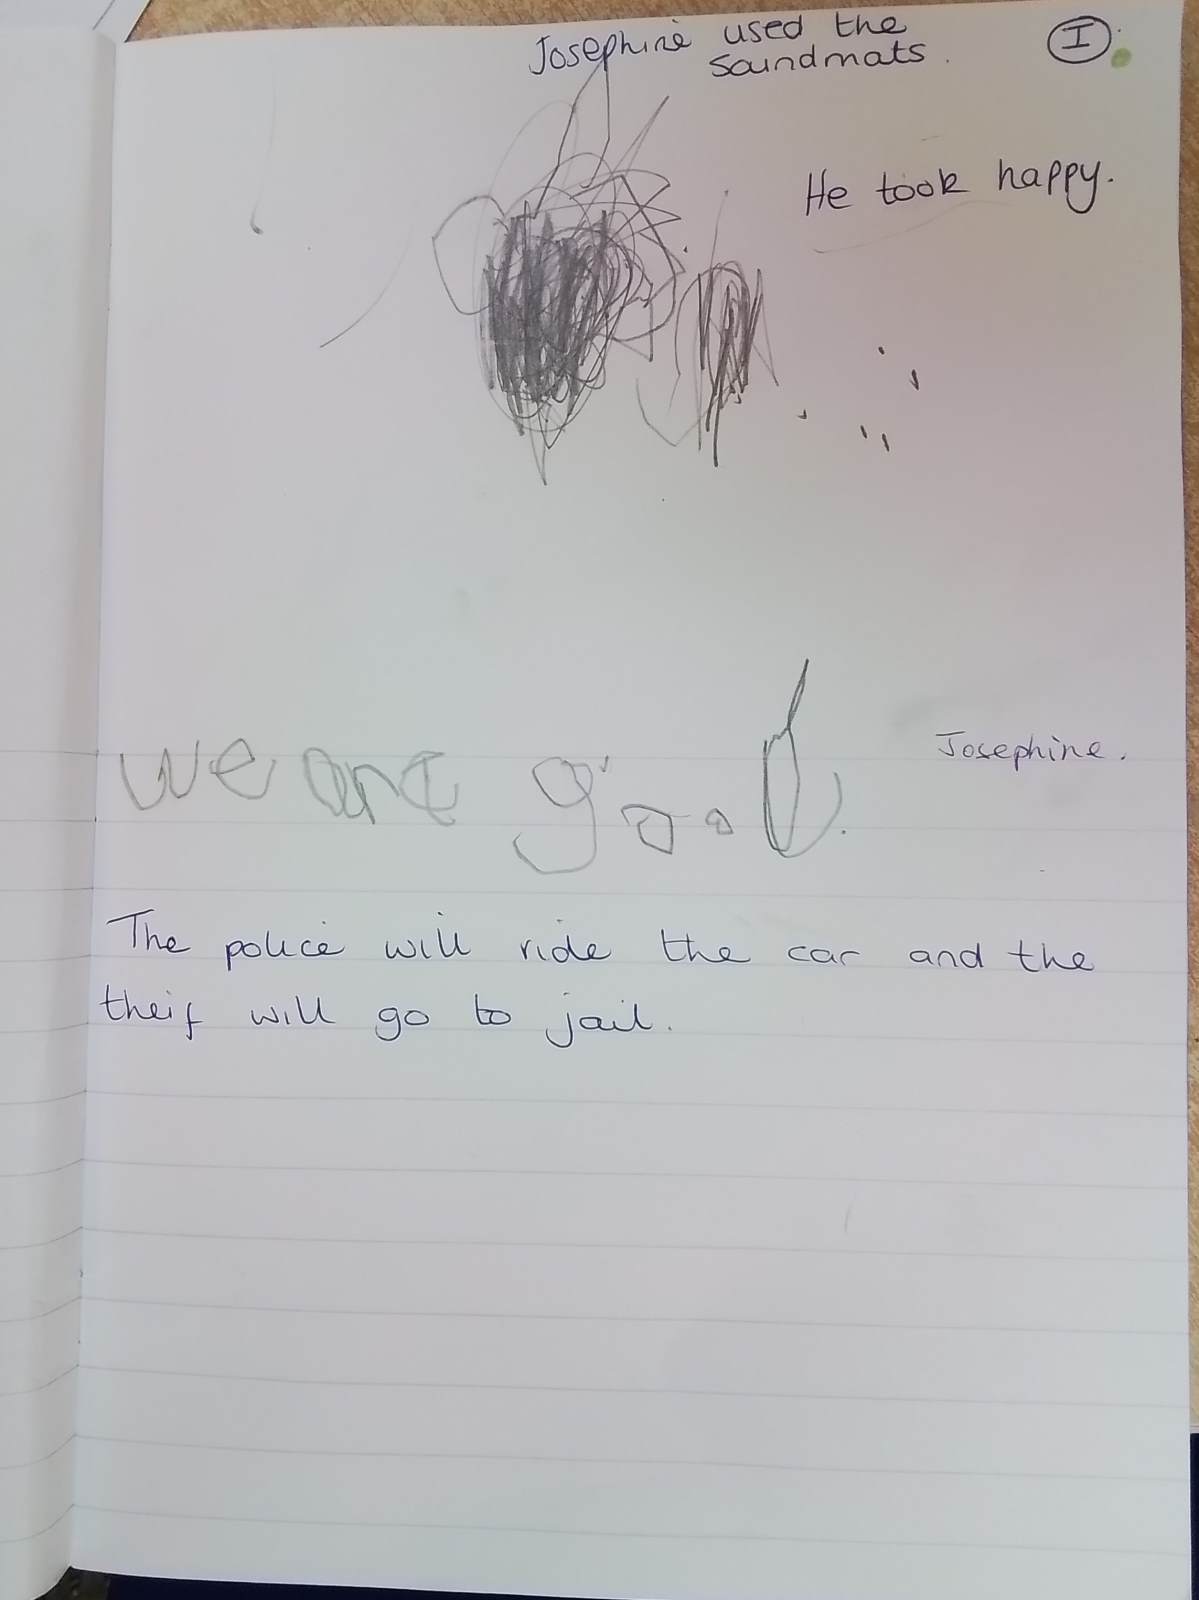 Josephine used the
soundmats.
I
He took happy.
we are good.
Josephine.
The police will ride the car and the
theif will go to jail.